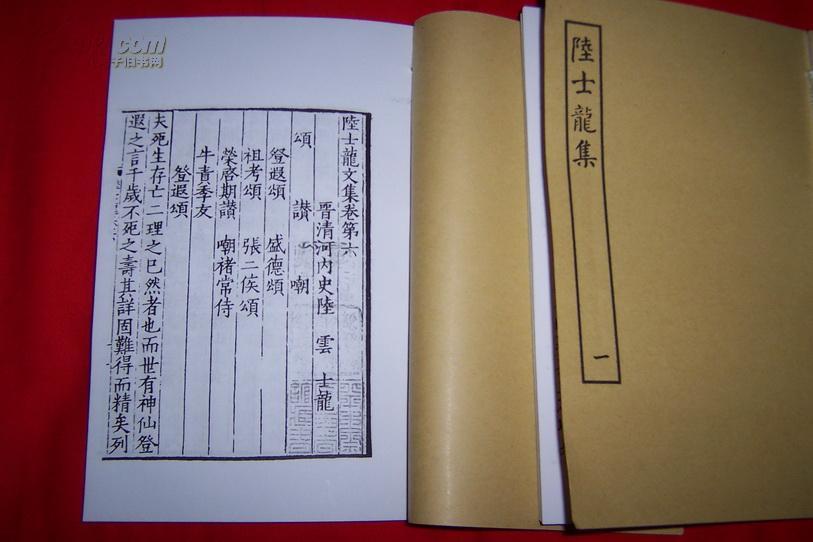 陸士龍集
一
陸士龍文集卷第六
晉清河内史陸 雲 士龍
頌 讃 嘲
登遐頌 盛德頌
祖考頌 張二侯頌
榮啓期讃 嘲褚常侍
牛責季友
登遐頌
夫死生存亡二理之已然者也而世有神仙登
遐之言千歲不死之壽其詳固難得而精矣列
.com
旧书网